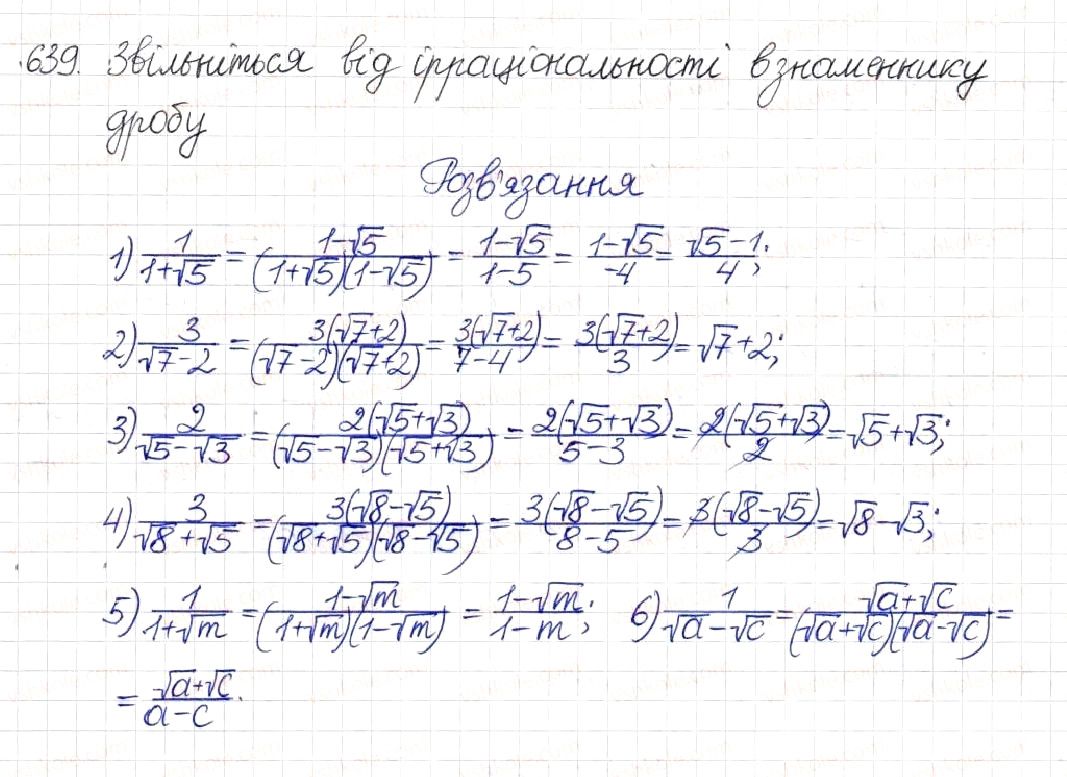 639. Звільніться від ірраціональності в знаменнику
дробу
Розв'язання
1) 1/(1+√5) = (1-√5)/((1+√5)(1-√5)) = (1-√5)/(1-5) = (1-√5)/(-4) = (√5-1)/4;
2) 3/(√7-2) = 3(√7+2)/((√7-2)(√7+2)) = 3(√7+2)/(7-4) = 3(√7+2)/3 = √7+2;
3) 2/(√5-√3) = 2(√5+√3)/((√5-√3)(√5+√3)) = 2(√5+√3)/(5-3) = 2(√5+√3)/2 = √5+√3;
4) 3/(√8+√5) = 3(√8-√5)/((√8+√5)(√8-√5)) = 3(√8-√5)/(8-5) = 3(√8-√5)/3 = √8-√3;
5) 1/(1+√m) = (1-√m)/((1+√m)(1-√m)) = (1-√m)/(1-m); 6) 1/(√a-√c) = (√a+√c)/((√a+√c)(√a-√c)) =
= (√a+√c)/(a-c).